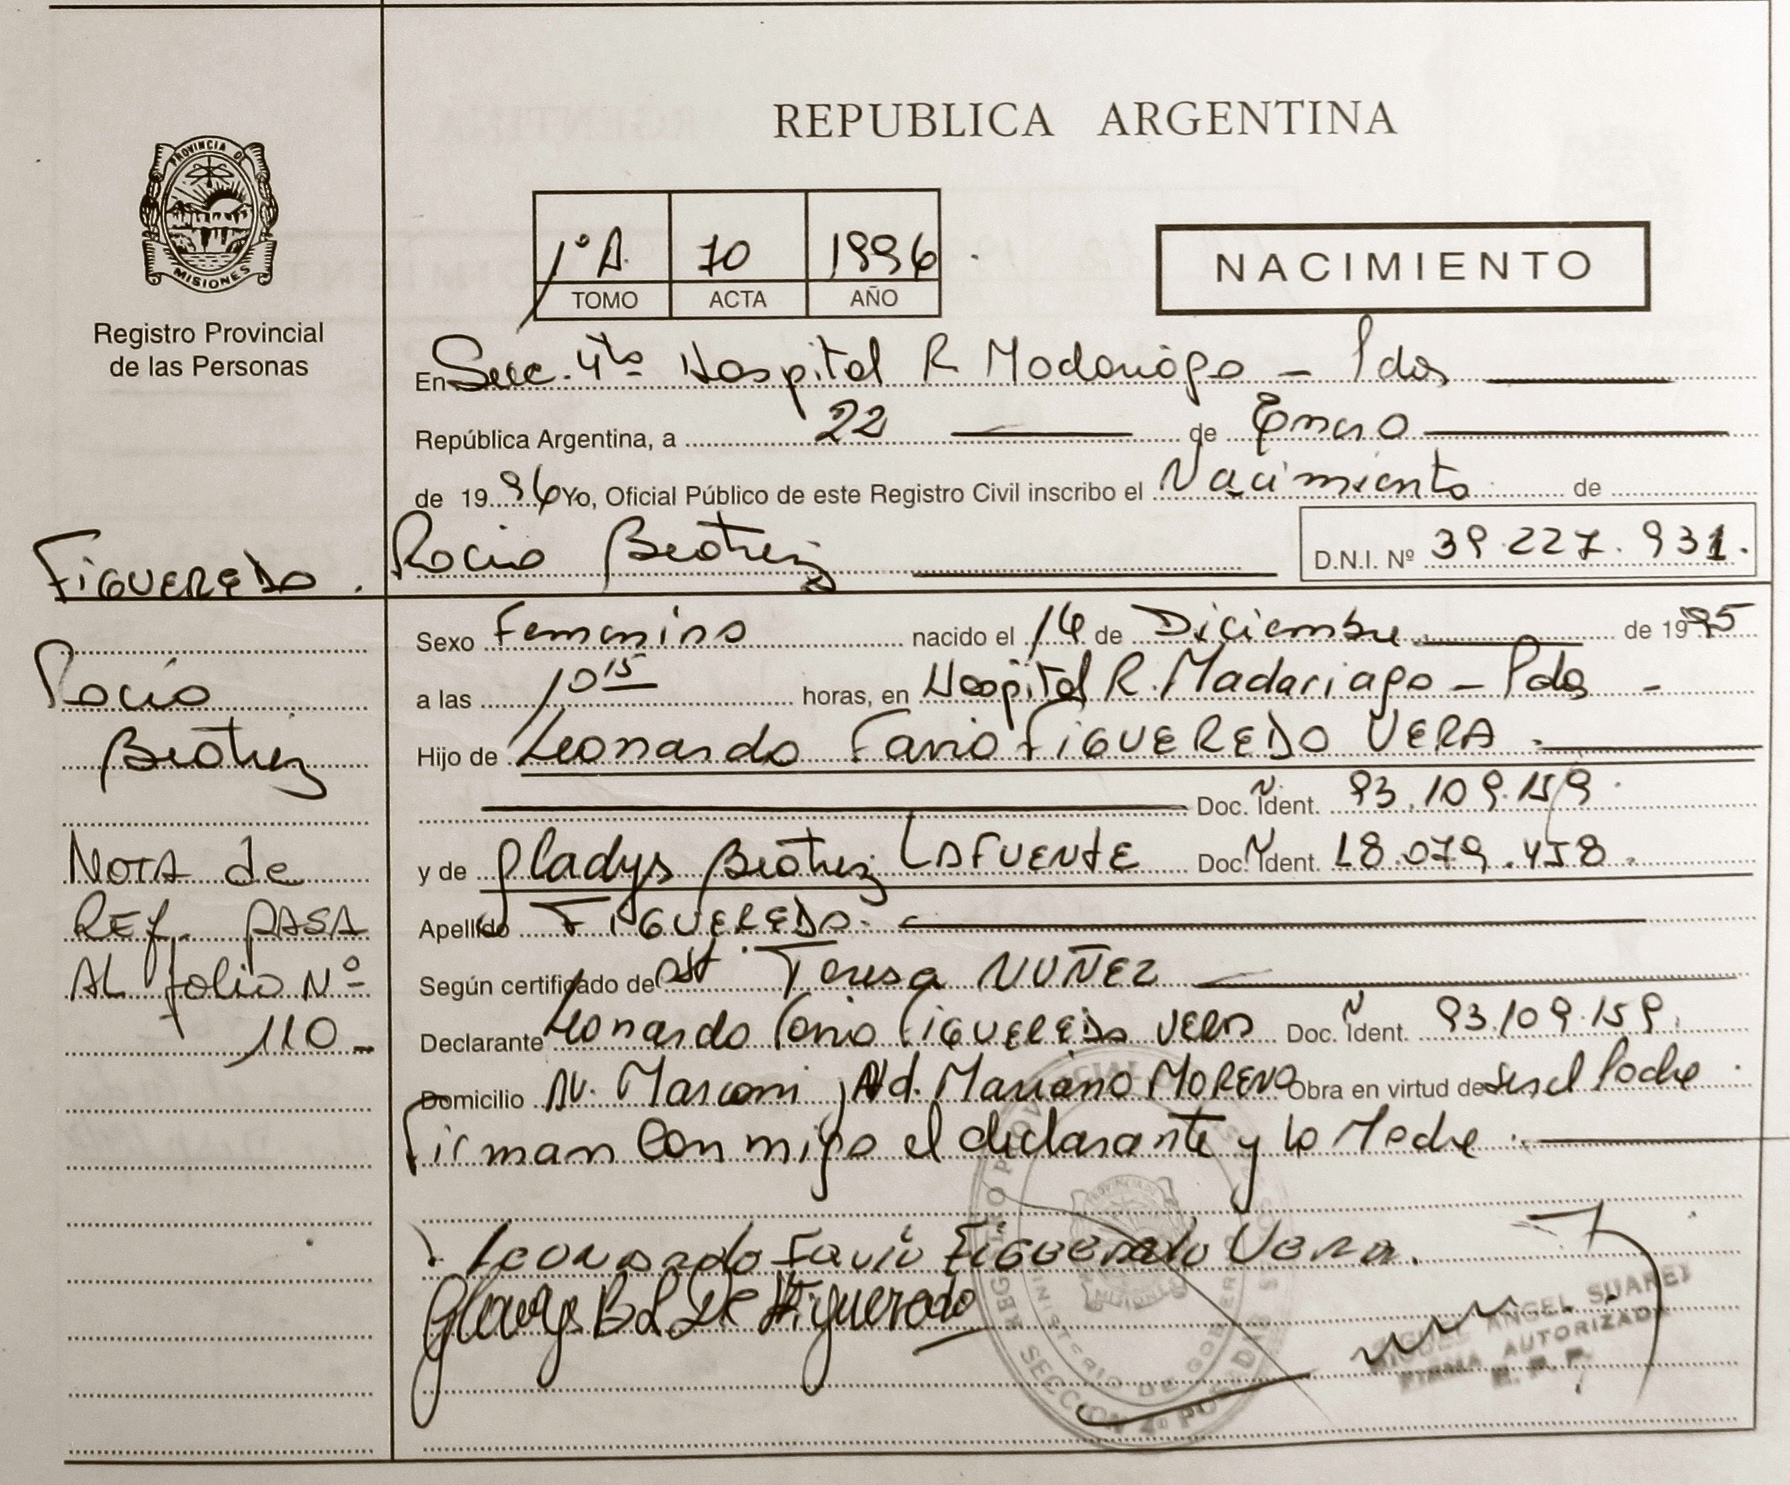 REPUBLICA ARGENTINA
PROVINCIA DE
MISIONES
Registro Provincial
de las Personas
1º A. 70 1996
TOMO ACTA AÑO
NACIMIENTO
En Secc. 4ta Hospital R Madariaga - Pdas
República Argentina, a 22 de Enero
de 1996 Yo, Oficial Público de este Registro Civil inscribo el Nacimiento de
Rocio Beatriz D.N.I. Nº 39.227.931.
FIGUEREDO.
Rocio
Beatriz
NOTA de
REF. PASA
AL folio Nº
110-
Sexo Femenino nacido el 16 de Diciembre de 1995
a las 10 15 horas, en Hospital R. Madariaga - Pdas -
Hijo de Leonardo Favio FIGUEREDO VERA.
Doc. Ident. 93.109.159.
y de Gladys Beatriz LAFUENTE Doc. Ident. 18.079.458.
Apellido FIGUEREDO.
Según certificado de Teresa NUÑEZ
Declarante Leonardo Favio FIGUEREDO VERA Doc. Ident. 93.109.159.
Domicilio AV. Marconi y Avd. Mariano MORENO Obra en virtud de ser el Padre.
Firman con migo el declarante y la Madre.
Leonardo Favio Figueredo Vera.
Gladys B L De Figueredo
MIGUEL ANGEL SUAREZ
FIRMA AUTORIZADA
R. P. P.